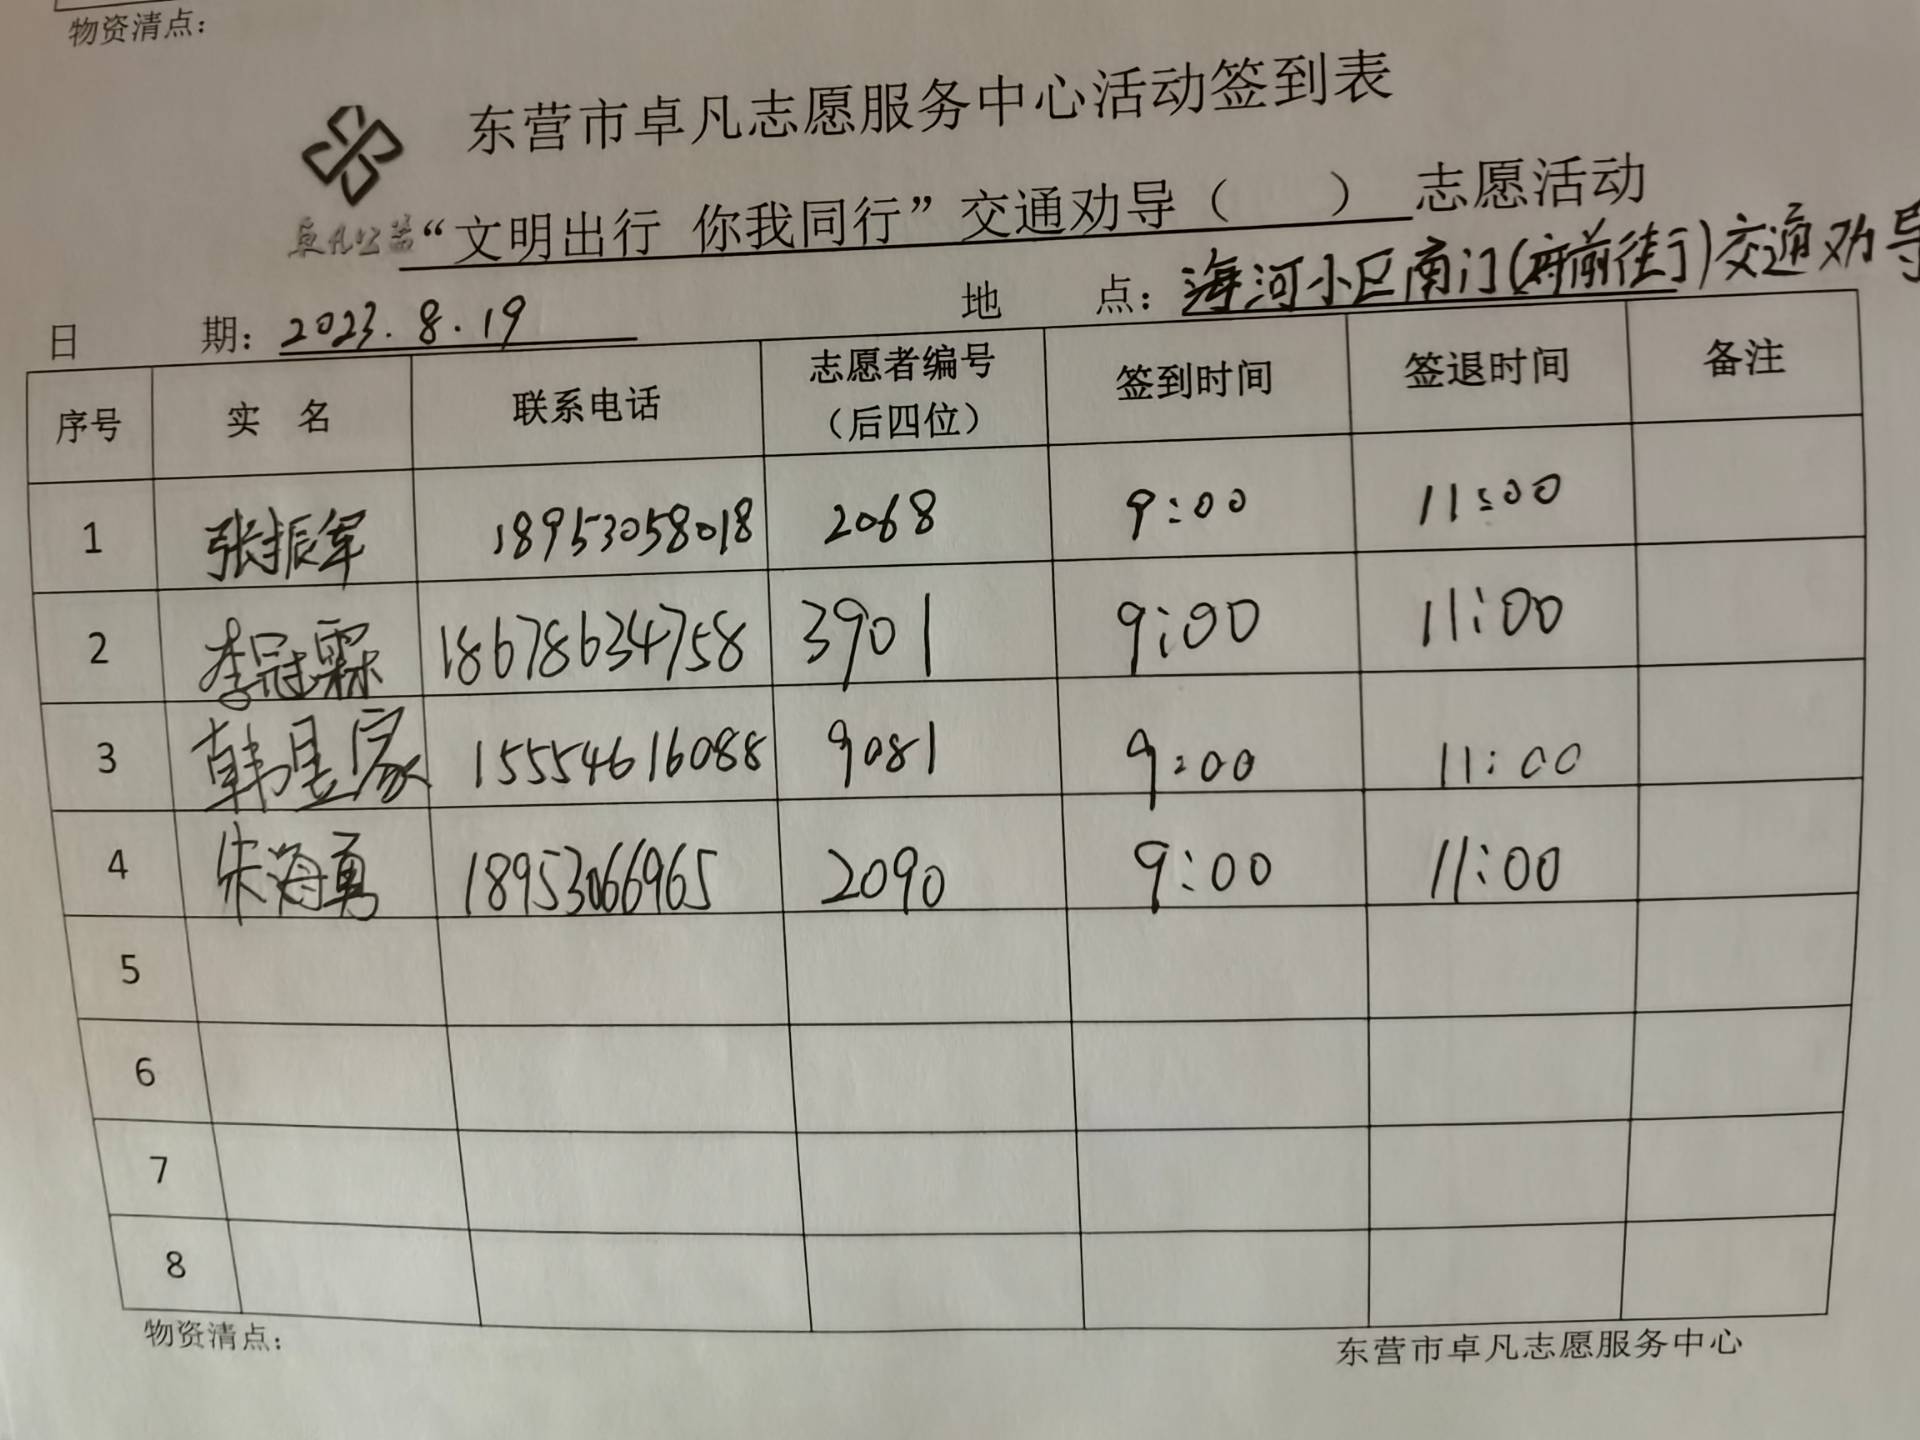 物资清点：
东营市卓凡志愿服务中心活动签到表
卓凡公益
“文明出行 你我同行”交通劝导（ ） 志愿活动
日 期：2023.8.19 地 点：海河小区南门(府前街)交通劝导
序号 实 名 联系电话 志愿者编号（后四位） 签到时间 签退时间 备注
1 张振军 18953058018 2068 9:00 11:00
2 李冠霖 18678634758 3901 9:00 11:00
3 韩昱家 15554616088 9081 9:00 11:00
4 朱海勇 18953066965 2090 9:00 11:00
5
6
7
8
物资清点： 东营市卓凡志愿服务中心